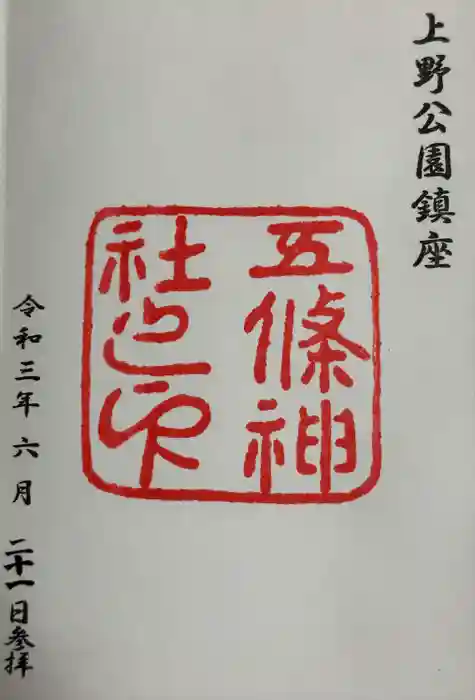 上野公園鎮座
五條神
社之印
令和三年六月二十一日参拝